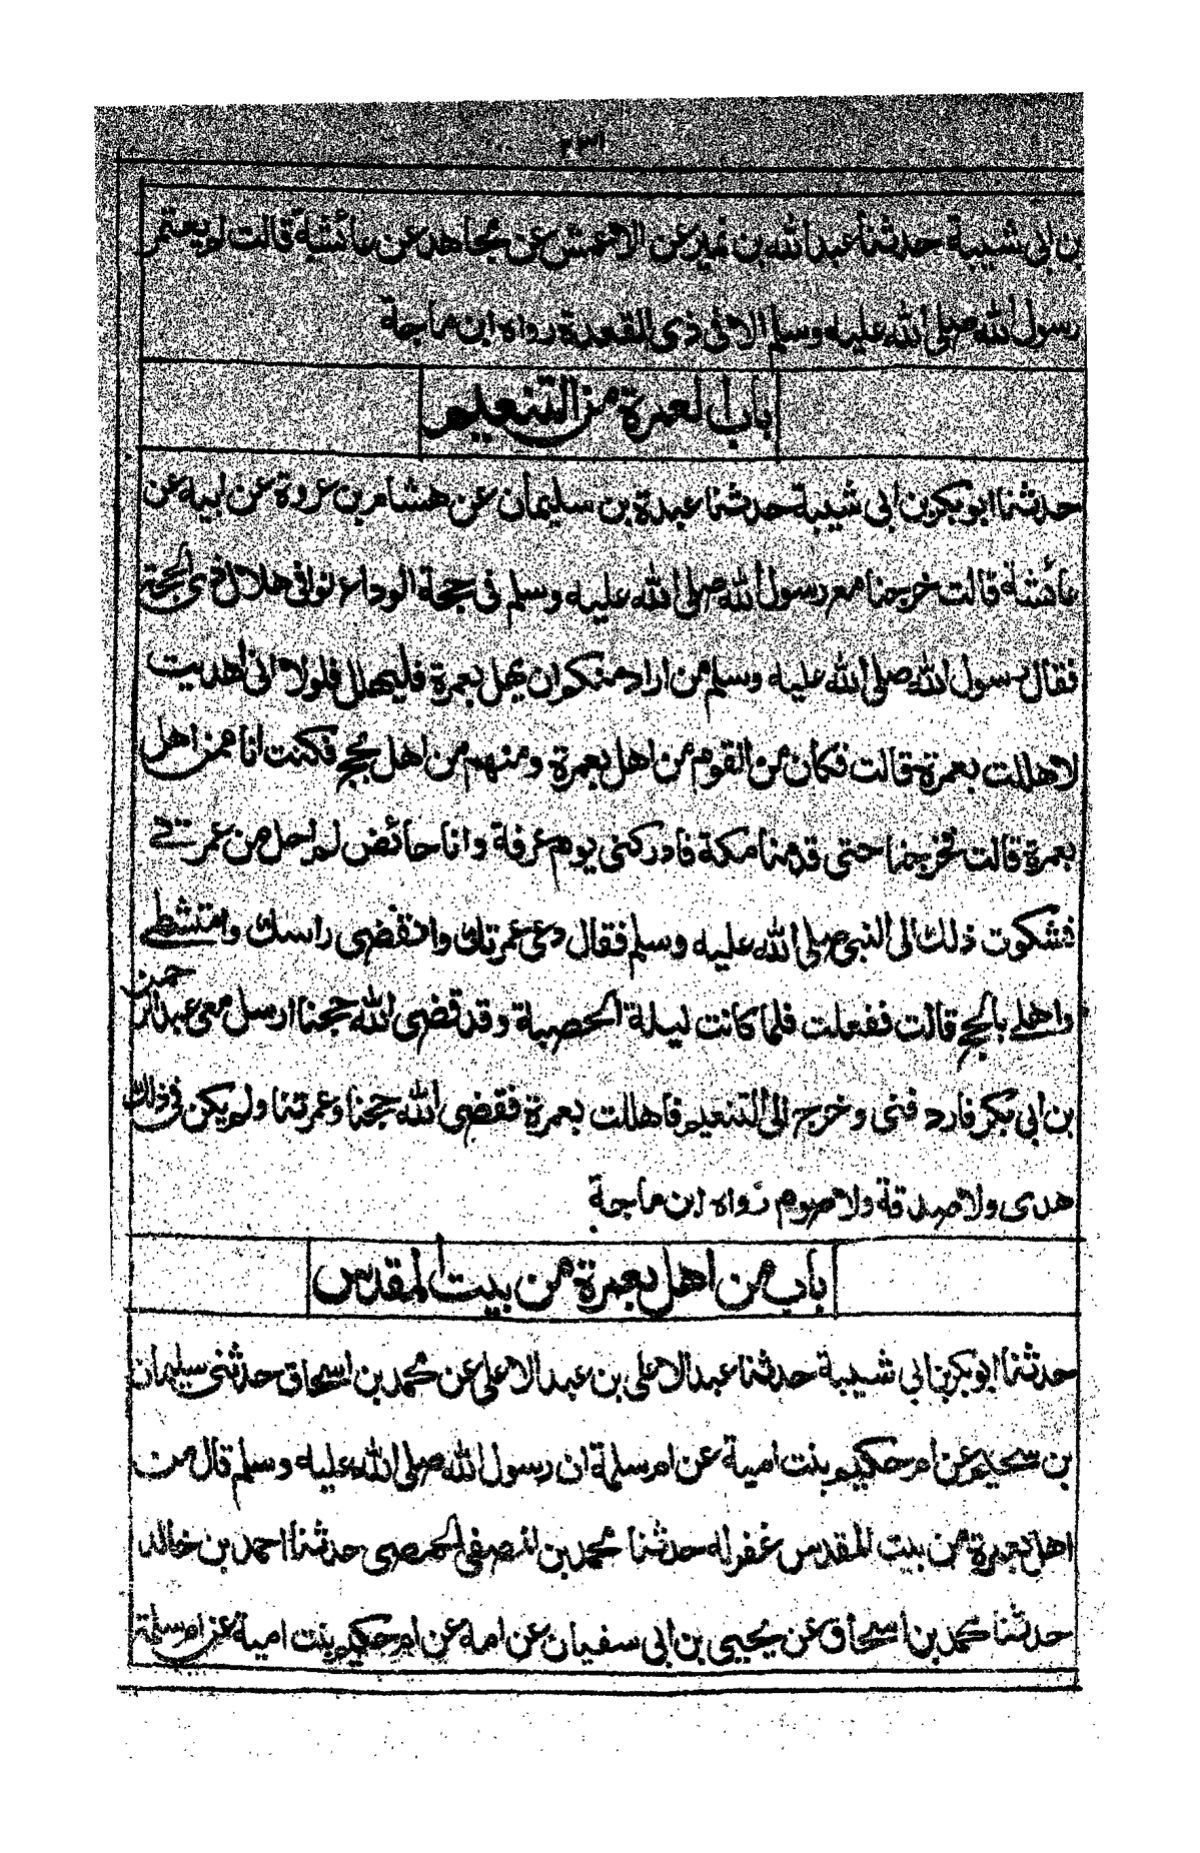 بن ابى شيبة حدثنا عبد الله بن نمير عن الاعمش عن مجاهد عن عائشة قالت لم يعتمر
رسول الله صلى الله عليه وسلم الا فى ذى القعدة رواه ابن ماجة
باب العمرة من التنعيم
حدثنا ابو بكر بن ابى شيبة حدثنا عبدة بن سليمان عن هشام بن عروة عن ابيه عن
عائشة قالت خرجنا مع رسول الله صلى الله عليه وسلم فى حجة الوداع نوافى هلال ذى الحجة
فقال رسول الله صلى الله عليه وسلم من اراد منكم ان يهل بعمرة فليهلل فلولا انى اهديت
لاهللت بعمرة قالت فكان من القوم من اهل بعمرة ومنهم من اهل بحج فكنت انا ممن اهل
بعمرة قالت فخرجنا حتى قدمنا مكة فادركنى يوم عرفة وانا حائض لم احل من عمرتى
فشكوت ذلك الى النبى صلى الله عليه وسلم فقال دعى عمرتك وانقضى راسك وامتشطى
واهلى بالحج قالت ففعلت فلما كانت ليلة الحصبة وقد قضى الله حجنا ارسل معى عبد الرحمن
بن ابى بكر فاردفنى وخرج الى التنعيم فاهللت بعمرة فقضى الله حجنا وعمرتنا ولم يكن فى ذلك
هدى ولا صدقة ولا صوم رواه ابن ماجة
باب من اهل بعمرة من بيت المقدس
حدثنا ابو بكر بن ابى شيبة حدثنا عبد الاعلى بن عبد الاعلى عن محمد بن اسحاق حدثنى سليمان
بن سحيم عن ام حكيم بنت امية عن ام سلمة ان رسول الله صلى الله عليه وسلم قال من
اهل بعمرة من بيت المقدس غفر له حدثنا محمد بن المصفى الحمصى حدثنا احمد بن خالد
حدثنا محمد بن اسحاق عن يحيى بن ابى سفيان عن امه عن ام حكيم بنت امية عن ام سلمة